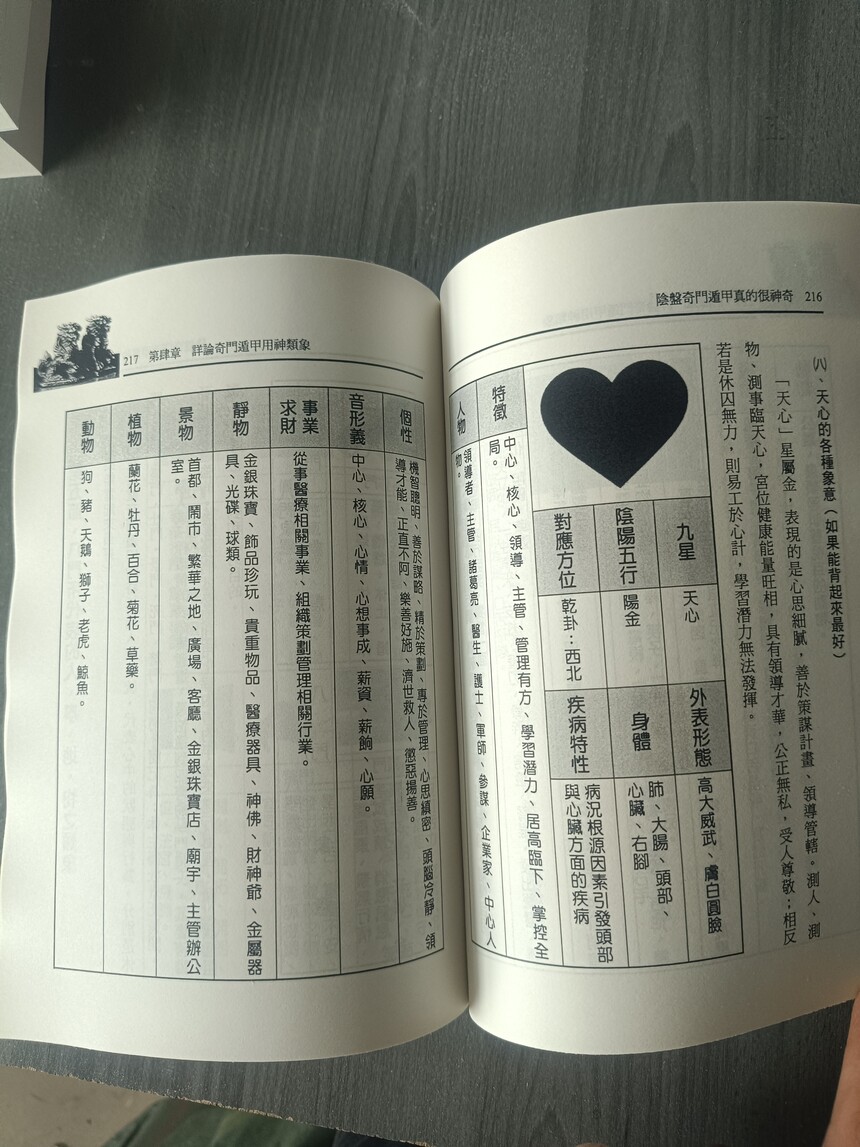 陰盤奇門遁甲真的很神奇 216
(八)、天心的各種象意(如果能背起來最好)
「天心」星屬金，表現的是心思細膩，善於策謀計畫、領導管轄。測人、測
物、測事臨天心，宮位健康能量旺相，具有領導才華，公正無私，受人尊敬；相反
若是休囚無力，則易工於心計，學習潛力無法發揮。
九星
天心
外表形態
高大威武、膚白圓臉
陰陽五行
陽金
身體
肺、大腸、頭部、
心臟、右腳
對應方位
乾卦：西北
疾病特性
病況根源因素引發頭部
與心臟方面的疾病
特徵
中心、核心、領導、主管、管理有方、學習潛力、居高臨下、掌控全
局。
人物
領導者、主管、諸葛亮、醫生、護士、軍師、參謀、企業家、中心人
物。
217 第肆章 詳論奇門遁甲用神類象
個性
機智聰明、善於謀略、精於策劃、專於管理、心思縝密、頭腦冷靜、領
導才能、正直不阿、樂善好施、濟世救人、懲惡揚善。
音形義
中心、核心、心情、心想事成、薪資、薪餉、心願。
事業
求財
從事醫療相關事業、組織策劃管理相關行業。
靜物
金銀珠寶、飾品珍玩、貴重物品、醫療器具、神佛、財神爺、金屬器
具、光碟、球類。
景物
首都、鬧市、繁華之地、廣場、客廳、金銀珠寶店、廟宇、主管辦公
室。
植物
蘭花、牡丹、百合、菊花、草藥。
動物
狗、豬、天鵝、獅子、老虎、鯨魚。